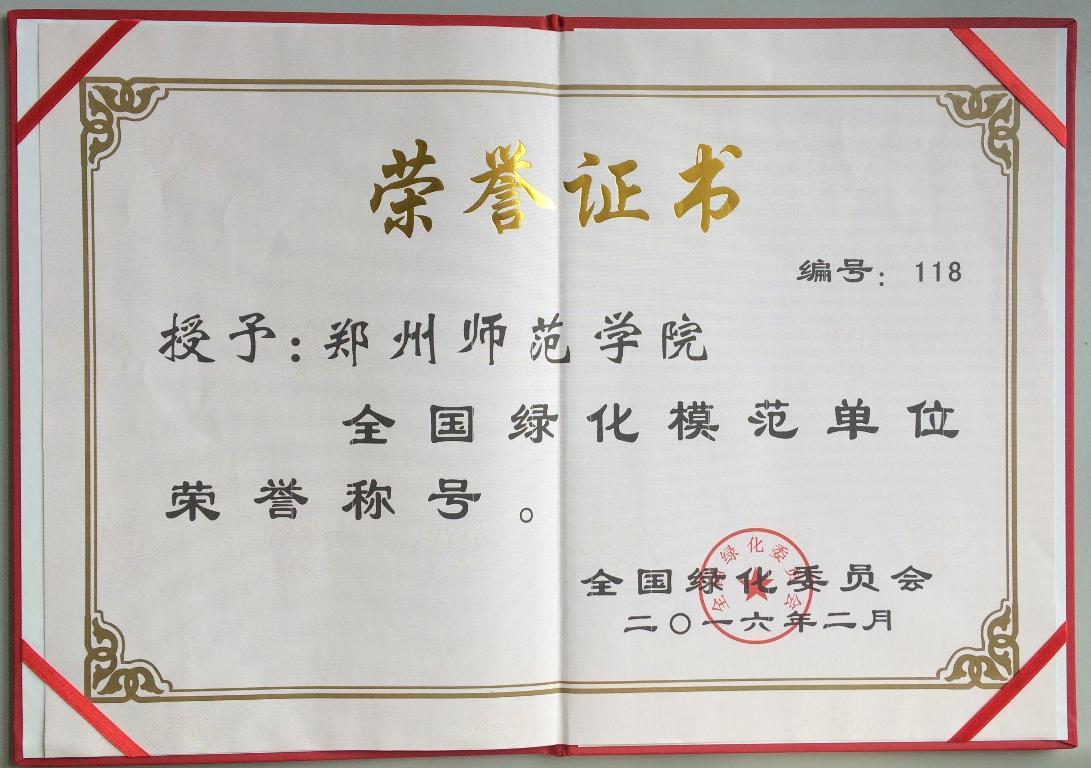 荣誉证书
编号：118
授予：郑州师范学院
全国绿化模范单位
荣誉称号。
全国绿化委员会
二〇一六年二月
全国绿化委员会